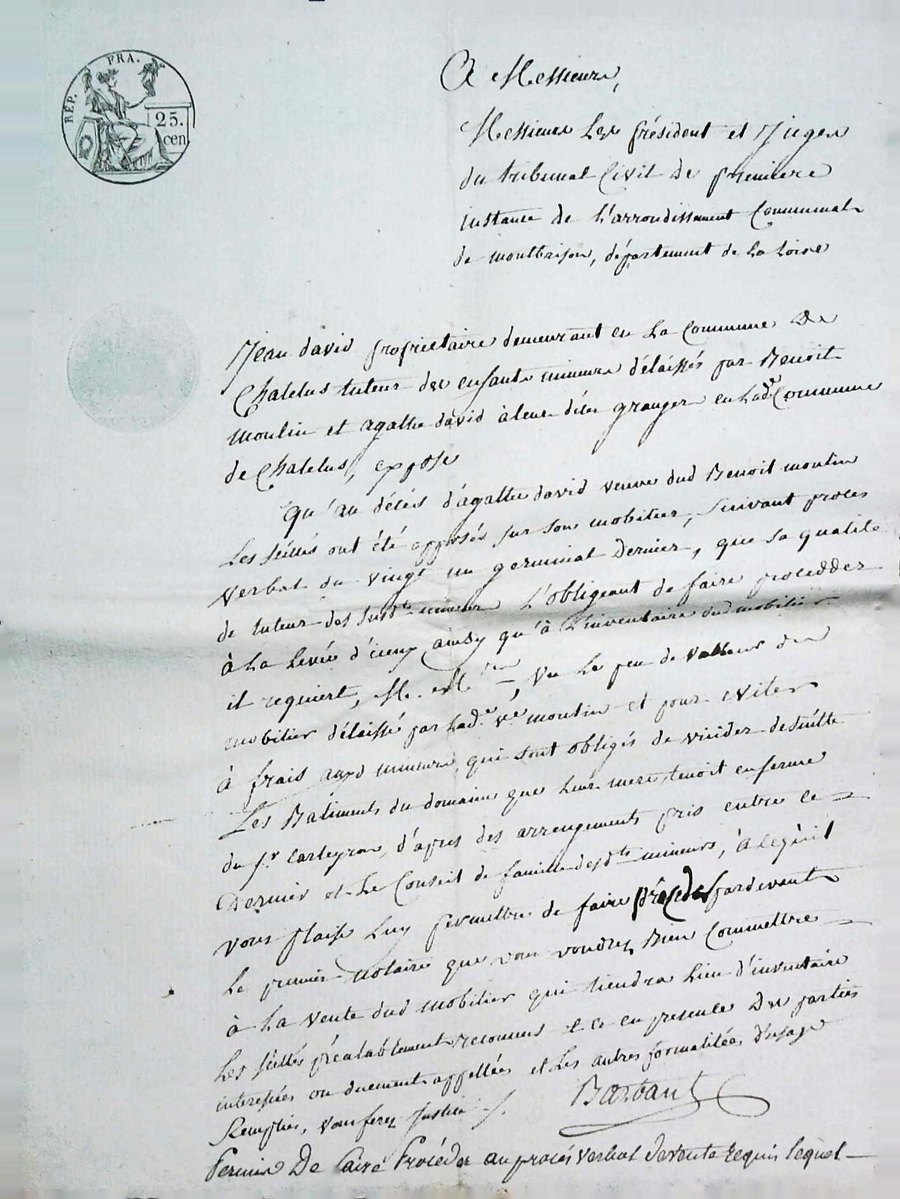 RÉP. FRA.
25.
cen.
A Messieurs,
Messieurs Les président et Juges
du tribunal Civil De première
instance de L'arrondissement Communal
de montbrison, département de La Loire
Jean david proprietaire demeurant en La Commune De
Chatelus tuteur des enfants mineurs délaissés par Benoit
moulin et agathe david à leur décès granger en Lad.e Commune
de Chatelus, expose
Qu'au décès d'agathe david veuve dud Benoit moulin
Les scellés ont été apposés sur son mobilier, suivant procès
verbal du vingt un germinal dernier, que sa qualité
de tuteur des susdts mineurs L'obligeant de faire procedder
à La Levée d'iceux ainsy qu'à L'inventaire dud mobilier
il requiert, M. M. vu Le peu de valleur du
mobilier délaissé par Lad.e ve moulin et pour eviter
à frais auxd mineurs, qui sont obligés de vuider desuitte
Les Batiments du domaine que Leur mere tenoit en ferme
du sr. Carteyron, d'après des arrengements pris entre ce
Dernier et Le Conseil de famille desdts mineurs, à ce qu'il
vous plaise Luy permettre de faire procéder pardevant
Le premier notaire que vous voudrez Bien Commettre
à La vente dud mobilier qui tiendra Lieu d'inventaire
Les scellés préalablement reconnus et ce en presence Des parties
interessées ou duement appellées et Les autres formalitées d'usage
Remplies, vous ferez justice ./.
Barban
Permis De faire Procéder au procès verbal de vente requis lequel